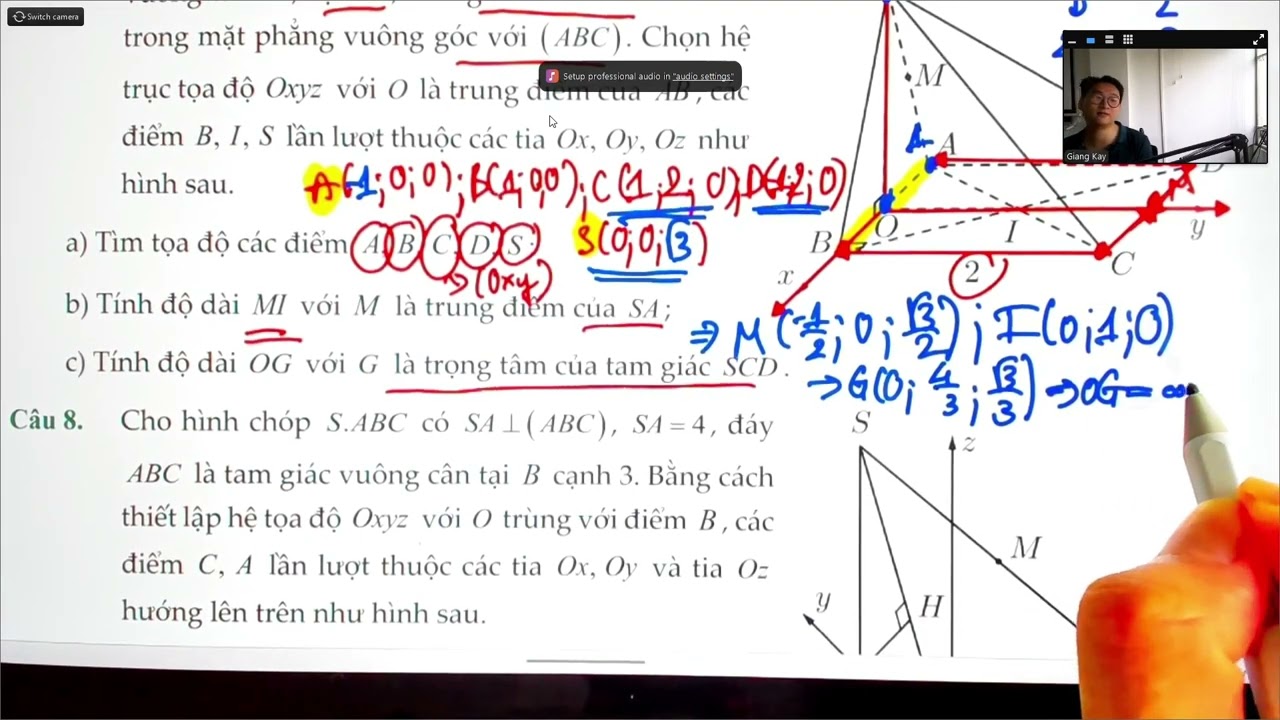 Switch camera
trong mặt phẳng vuông góc với (ABC). Chọn hệ
Setup professional audio in "audio settings"
trục tọa độ Oxyz với O là trung điểm của AB, các
điểm B, I, S lần lượt thuộc các tia Ox, Oy, Oz như
hình sau.
A(-1; 0; 0); B(1; 0; 0); C(1; 2; 0); D(-1; 2; 0)
a) Tìm tọa độ các điểm A, B, C, D, S.
S(0; 0; √3)
→ (Oxy)
b) Tính độ dài MI với M là trung điểm của SA;
⇒ M(-1/2; 0; √3/2); I(0; 1; 0)
c) Tính độ dài OG với G là trọng tâm của tam giác SCD.
→ G(0; 4/3; √3/3) ⇒ OG =
M
A
O
B
I
C
x
y
2
Giang Kay
Câu 8. Cho hình chóp S.ABC có SA ⊥ (ABC), SA = 4, đáy
ABC là tam giác vuông cân tại B cạnh 3. Bằng cách
thiết lập hệ tọa độ Oxyz với O trùng với điểm B, các
điểm C, A lần lượt thuộc các tia Ox, Oy và tia Oz
hướng lên trên như hình sau.
S
z
M
y
H